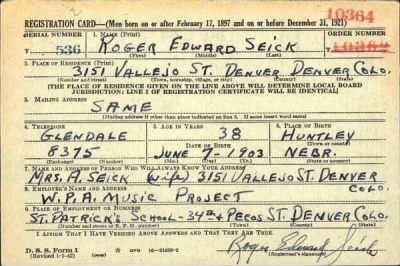 2
10364
REGISTRATION CARD—(Men born on or after February 17, 1897 and on or before December 31, 1921)
SERIAL NUMBER 1. NAME (Print) ORDER NUMBER
T 536 ROGER EDWARD SEICK 10362
(First) (Middle) (Last)
2. PLACE OF RESIDENCE (Print)
3151 VALLEJO ST. DENVER DENVER COLO.
(Number and street) (Town, township, village, or city) (County) (State)
[THE PLACE OF RESIDENCE GIVEN ON THE LINE ABOVE WILL DETERMINE LOCAL BOARD
JURISDICTION; LINE 2 OF REGISTRATION CERTIFICATE WILL BE IDENTICAL]
3. MAILING ADDRESS
SAME
(Mailing address if other than place indicated on line 2. If same insert word same)
4. TELEPHONE 5. AGE IN YEARS 6. PLACE OF BIRTH
GLENDALE 38 HUNTLEY
DATE OF BIRTH (Town or county)
6375 JUNE 7 1903 NEBR.
(Exchange) (Number) (Mo.) (Day) (Yr.) (State or country)
7. NAME AND ADDRESS OF PERSON WHO WILL ALWAYS KNOW YOUR ADDRESS
MRS. H. SEICK (wife) 3151 VALLEJO ST. DENVER
COLO.
8. EMPLOYER'S NAME AND ADDRESS
W.P.A. MUSIC PROJECT
9. PLACE OF EMPLOYMENT OR BUSINESS
ST. PATRICK'S SCHOOL - 34th & PECOS ST. DENVER COLO.
(Number and street or R. F. D. number) (Town) (County) (State)
I AFFIRM THAT I HAVE VERIFIED ABOVE ANSWERS AND THAT THEY ARE TRUE.
D. S. S. Form 1
(Revised 1-1-42) GPO 16—21630-2
Roger Edward Seick